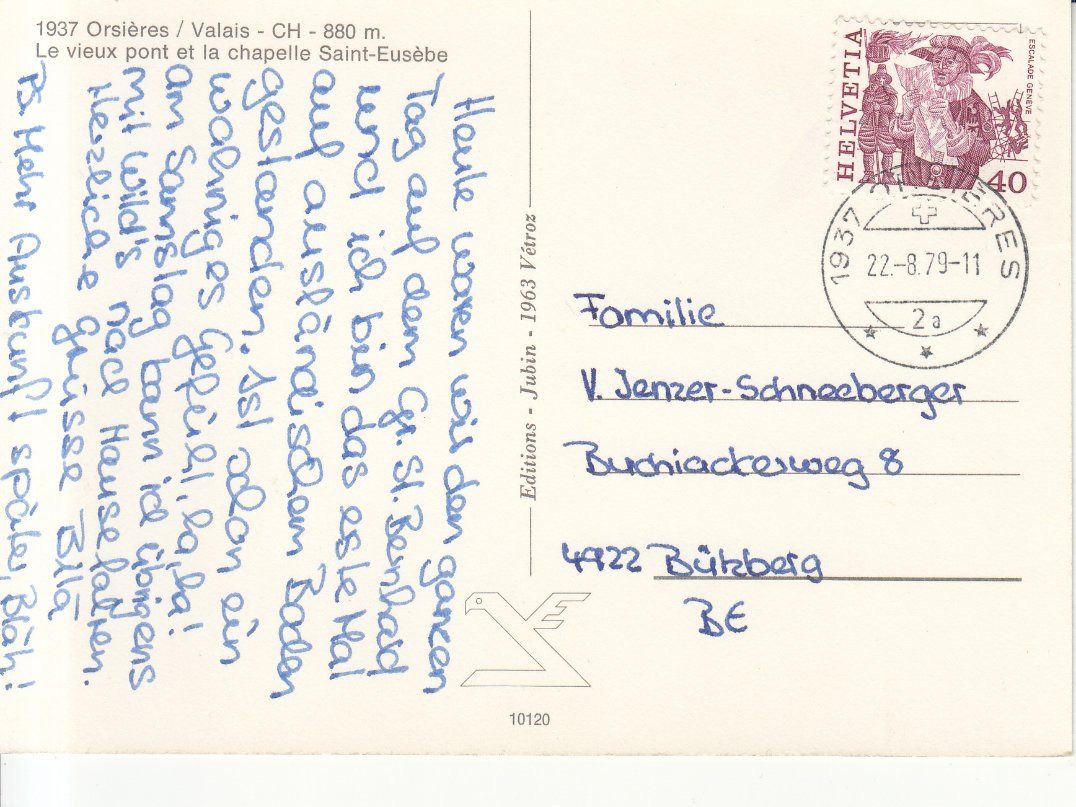 1937 Orsières / Valais - CH - 880 m.
Le vieux pont et la chapelle Saint-Eusèbe
Heute waren wir den ganzen
Tag auf dem Gr. St. Bernhard
und ich bin das erste Mal
auf ausländischem Boden
gestanden. Ist schon ein
wahniges Gefühl, ha, ha!
Am Samstag kann ich übrigens
mit Wild's nach Hause fahren.
Herzliche Grüsse
PS Mehr Auskunft später, Bläh!
Editions - Jubin - 1963 Vétroz
10120
HELVETIA
ESCALADE GENÈVE
40
1937 ORSIERES
22.-8.79-11
2a
Familie
V. Jenzer-Schneeberger
Buchiackerweg 8
4922 Bützberg
BE